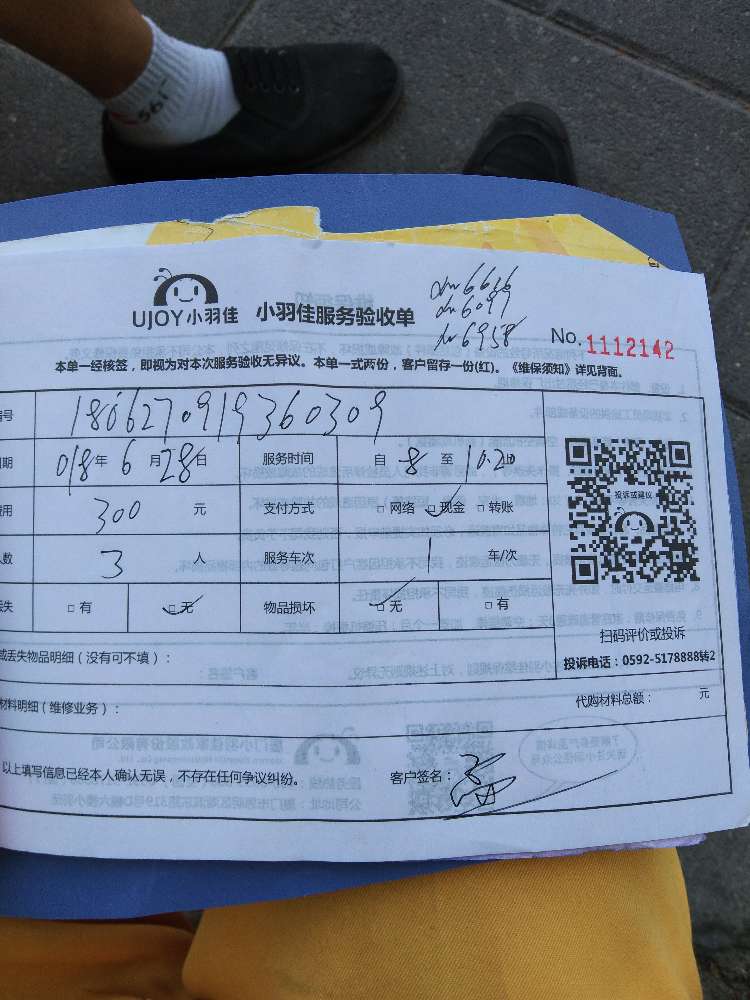 UJOY小羽佳 小羽佳服务验收单
dw6626
dw6097
dw6958
No.1112142
本单一经核签，即视为对本次服务验收无异议。本单一式两份，客户留存一份(红)。《维保须知》详见背面。
编号 1806270919360309
018年6月28日 服务时间 自8至10.20
300元 支付方式 □网络 ☑现金 □转账
人数 3人 服务车次 1车/次
□有 ☑无 物品损坏 ☑无 □有
投诉或建议
扫码评价或投诉
投诉电话：0592-5178888转2
或丢失物品明细（没有可不填）：
代购材料总额： 元
材料明细（维修业务）：
以上填写信息已经本人确认无误，不存在任何争议纠纷。 客户签名：